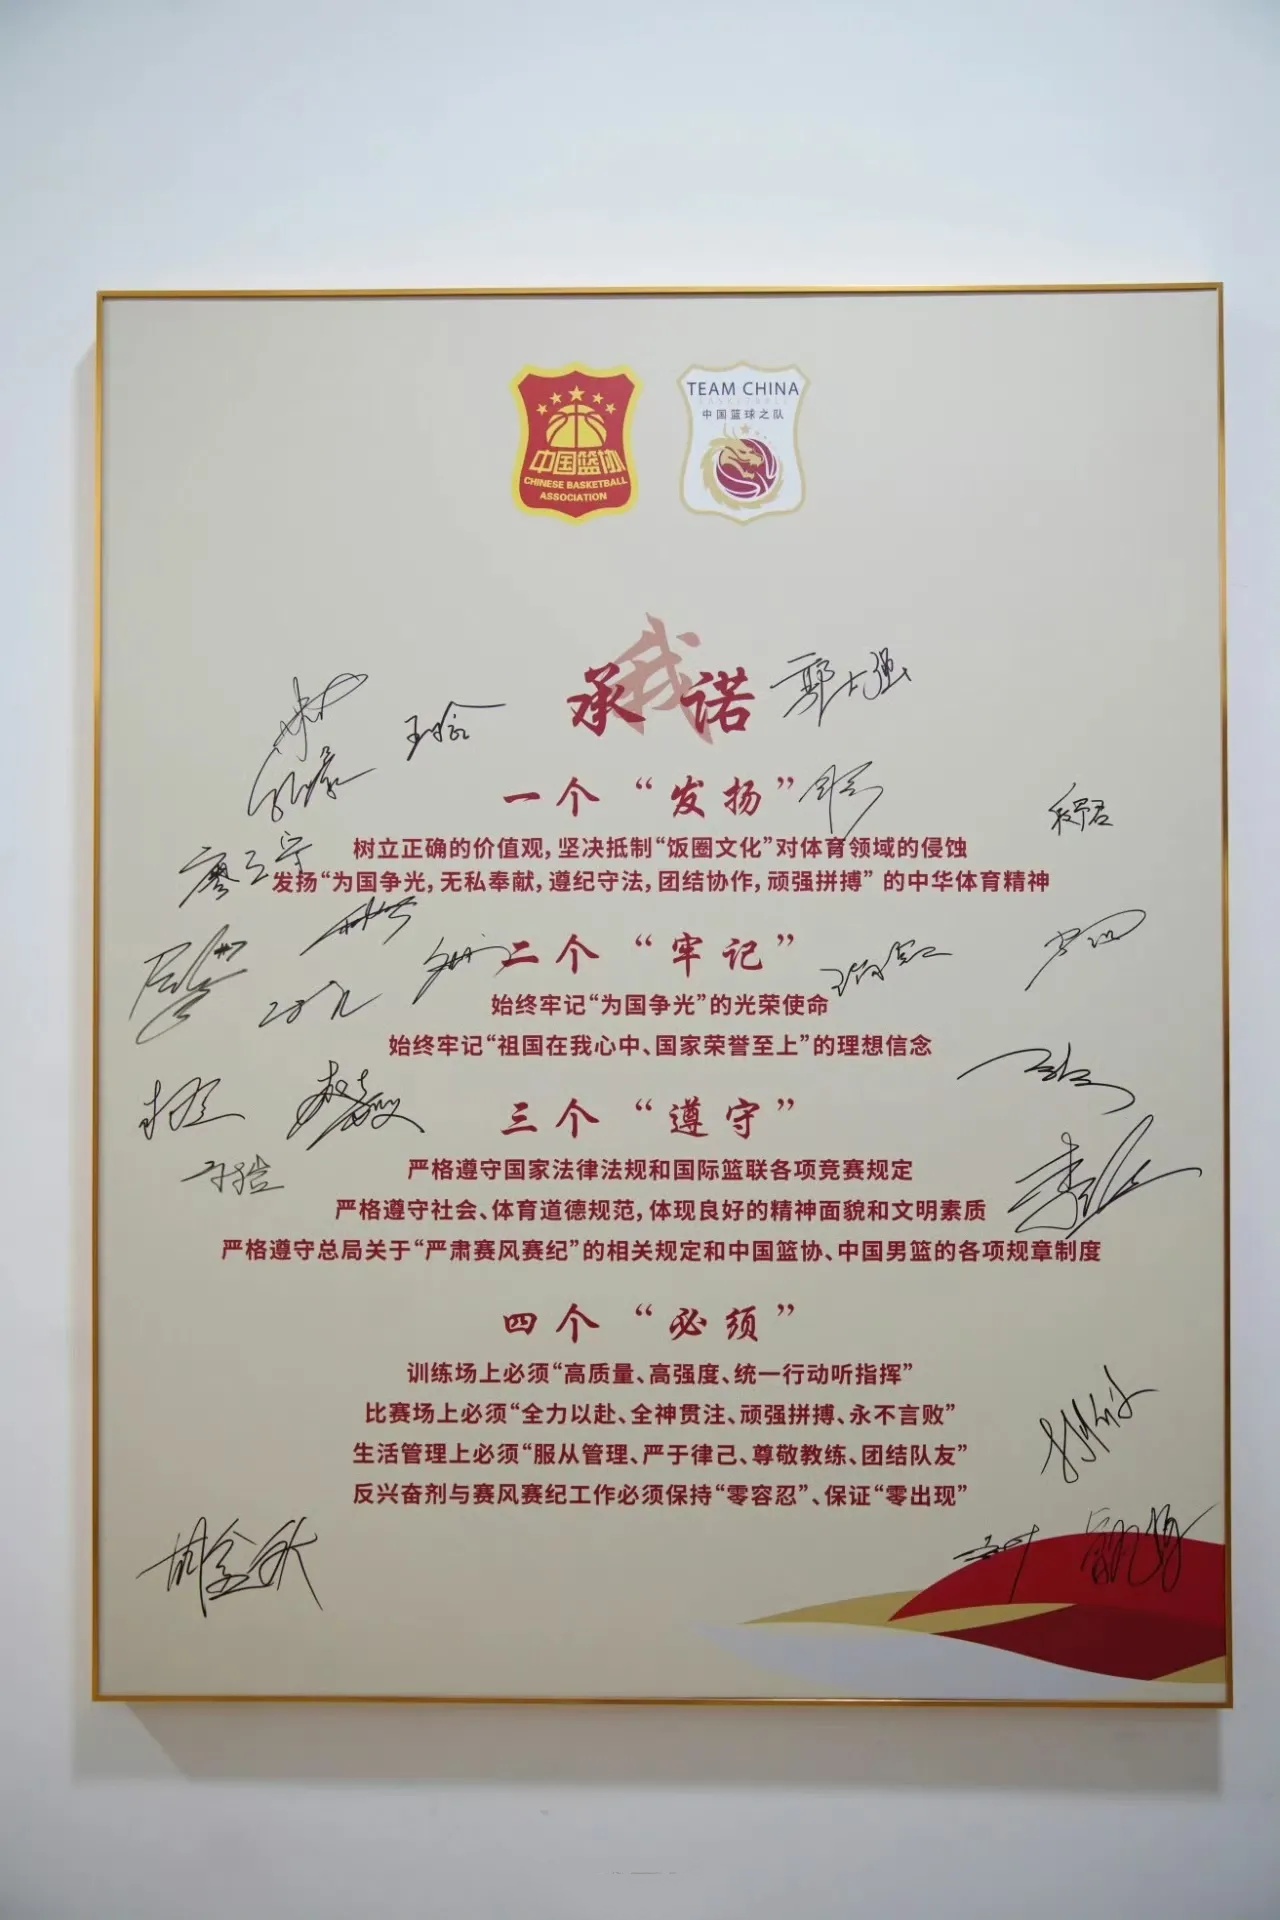 中国篮协
CHINESE BASKETBALL
ASSOCIATION
TEAM CHINA
BASKETBALL
中国篮球之队
我
承诺
郭士强
王晗
一个“发扬”
程君
树立正确的价值观,坚决抵制“饭圈文化”对体育领域的侵蚀
廖三宁
发扬“为国争光,无私奉献,遵纪守法,团结协作,顽强拼搏” 的中华体育精神
二个“牢记”
#7
始终牢记“为国争光”的光荣使命
始终牢记“祖国在我心中、国家荣誉至上”的理想信念
三个“遵守”
严格遵守国家法律法规和国际篮联各项竞赛规定
严格遵守社会、体育道德规范,体现良好的精神面貌和文明素质
严格遵守总局关于“严肃赛风赛纪”的相关规定和中国篮协、中国男篮的各项规章制度
四个“必须”
训练场上必须“高质量、高强度、统一行动听指挥”
比赛场上必须“全力以赴、全神贯注、顽强拼搏、永不言败”
生活管理上必须“服从管理、严于律己、尊敬教练、团结队友”
反兴奋剂与赛风赛纪工作必须保持“零容忍”、保证“零出现”
胡金秋